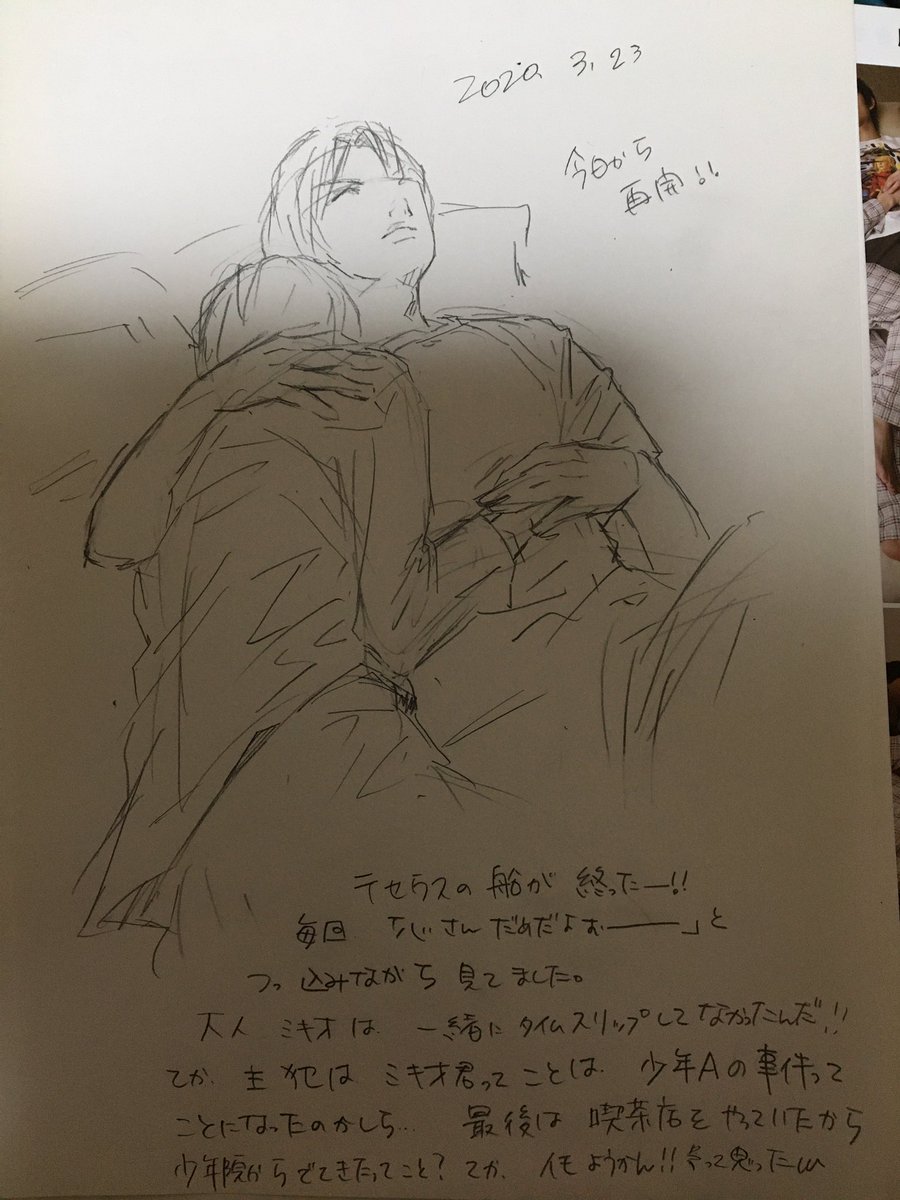 2020. 3. 23
今日から
再開!!
テセウスの船が 終ったー!!
毎回 「心さんだめだよぉ―――」と
つっ込みながら 見てました。
大人 ミキオは 一緒に タイムスリップしてなかったんだ!!
てか. 主犯は ミキオ君ってことは. 少年Aの事件って
ことになったのかしら… 最後は 喫茶店を やっていたから
少年院からでてきたってこと? てか、イモようかん!! って思ったω